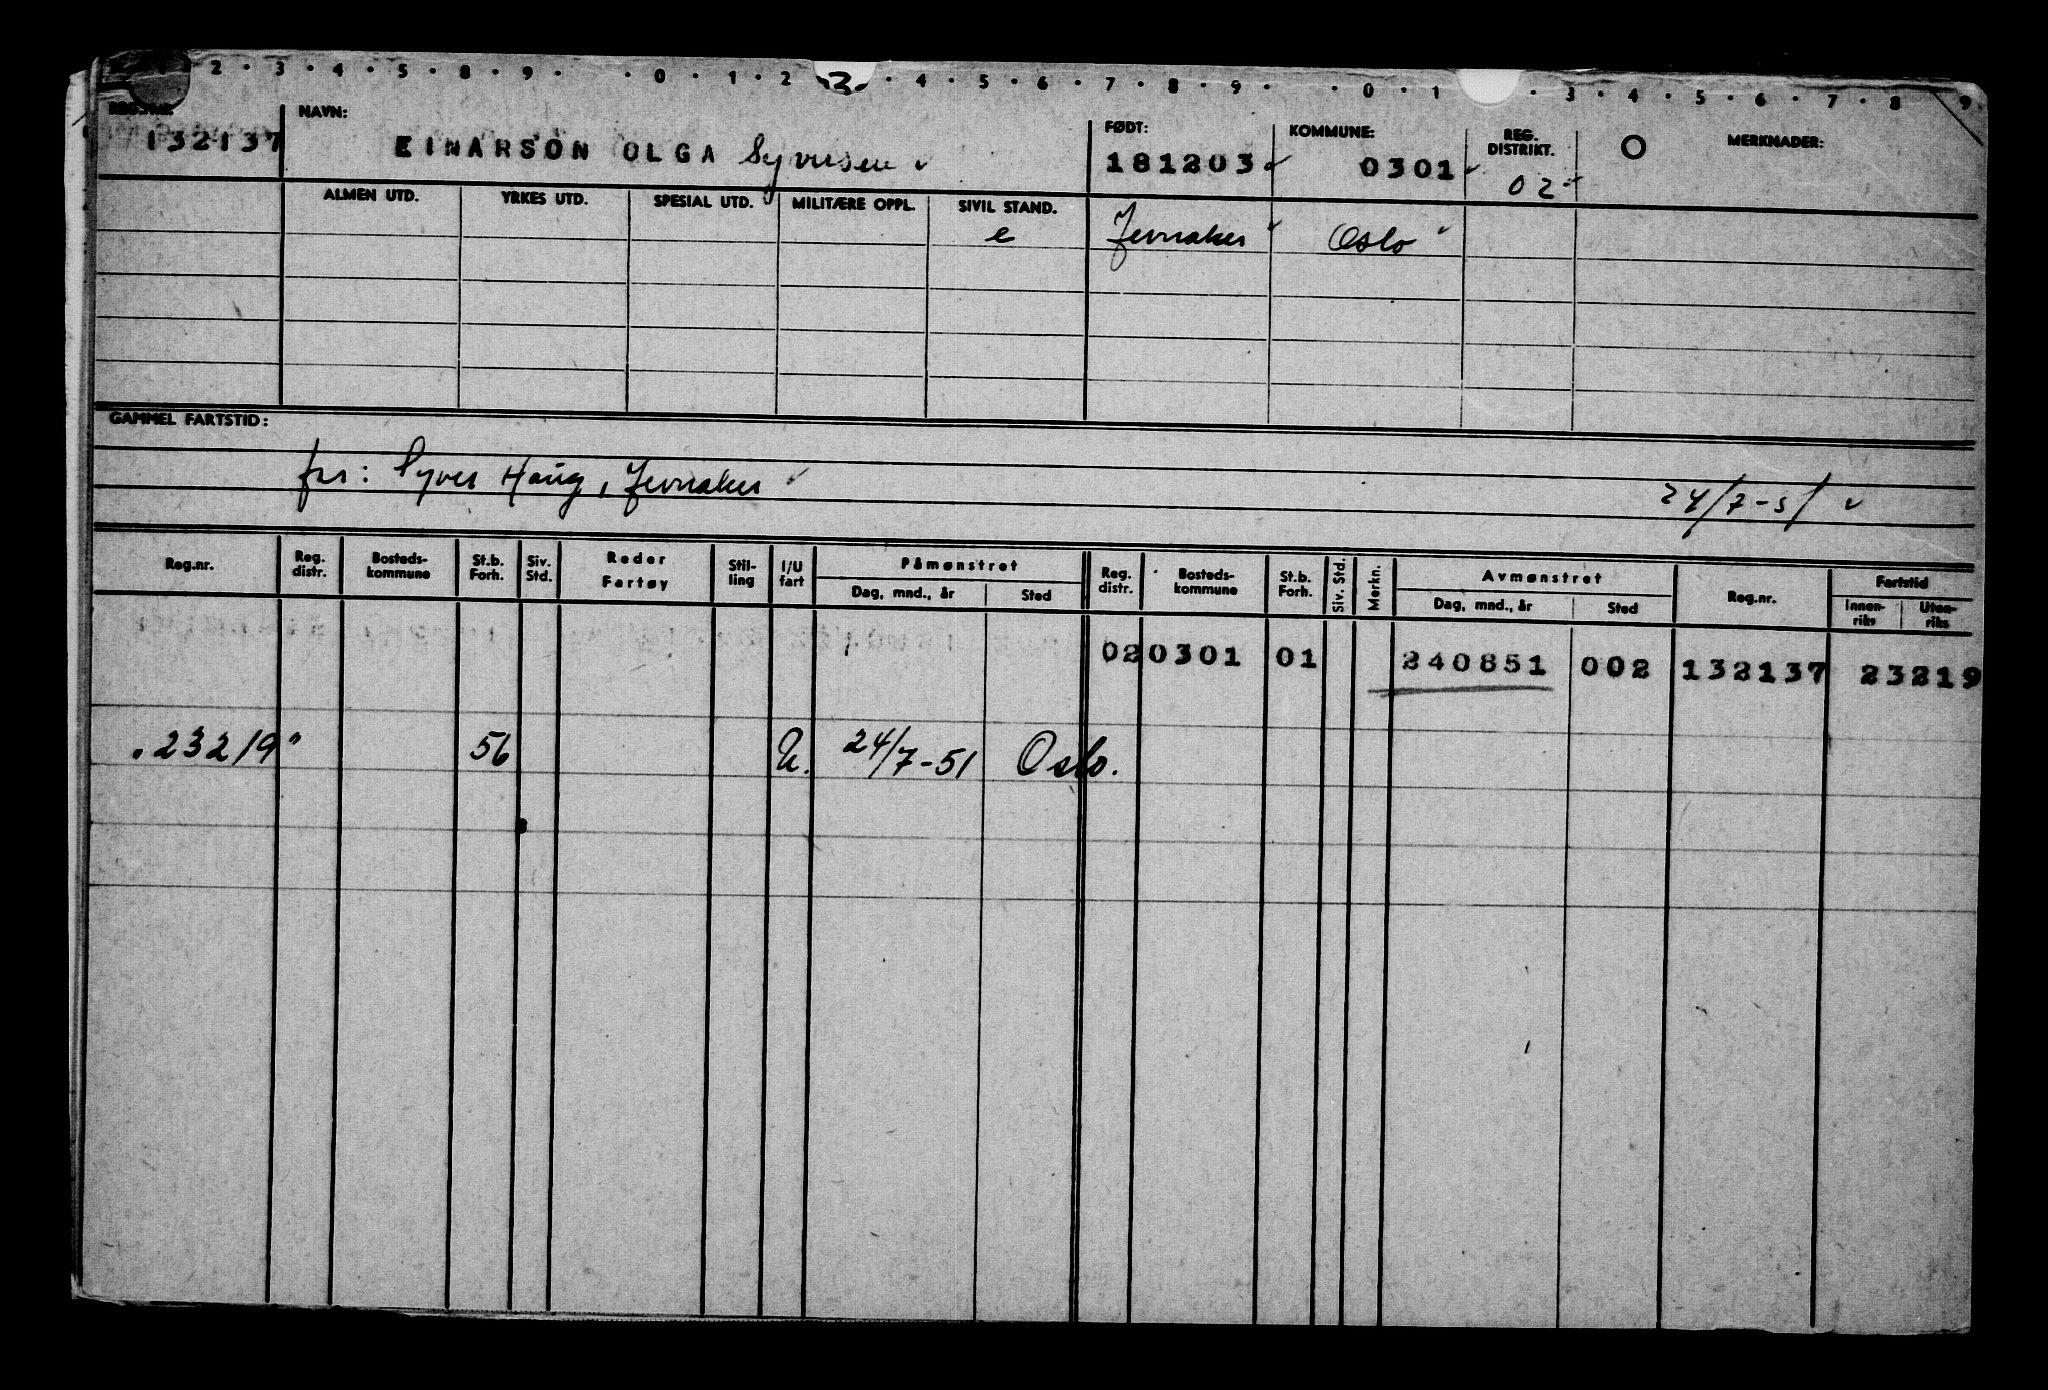 2 · 3 · 4 · 5 · 8 · 9 · · 0 · 1 · 2 3 · 4 · 5 · 6 · 7 · 8 · 9 · · 0 · 1 · 3 · 4 · 5 · 6 · 7 · 8 9
REG.NR. NAVN: FØDT: KOMMUNE: REG. DISTRIKT. MERKNADER:
132137 EINARSON OLGA Syversen 181203 0301 02
ALMEN UTD. YRKES UTD. SPESIAL UTD. MILITÆRE OPPL. SIVIL STAND.
e Jevnaker Oslo
GAMMEL FARTSTID:
far: Syver Haug, Jevnaker 24/7-51
Reg.nr. Reg. distr. Bosteds-kommune St.b. Forh. Siv. Std. Reder Fartøy Stil-ling I/U fart Påmønstret Dag, mnd., år Sted Reg. distr. Bosteds-kommune St.b. Forh. Siv. Std. Merkn. Avmønstret Dag, mnd., år Sted Reg.nr. Fartstid Innen-riks Uten-riks
02 0301 01 240851 002 132137 23219
"23219" 56 U. 24/7-51 Oslo.